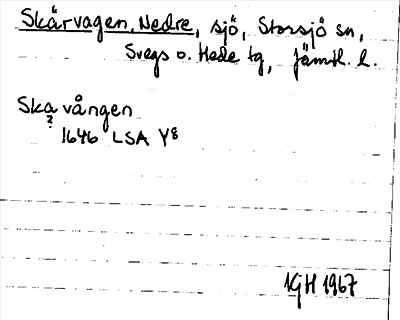 Skärvagen, Nedre, sjö, Storsjö sn,
Svegs o. Hede tg, Jämtl. l.
Ska vången
?
1646 LSA Y8
IGH 1967